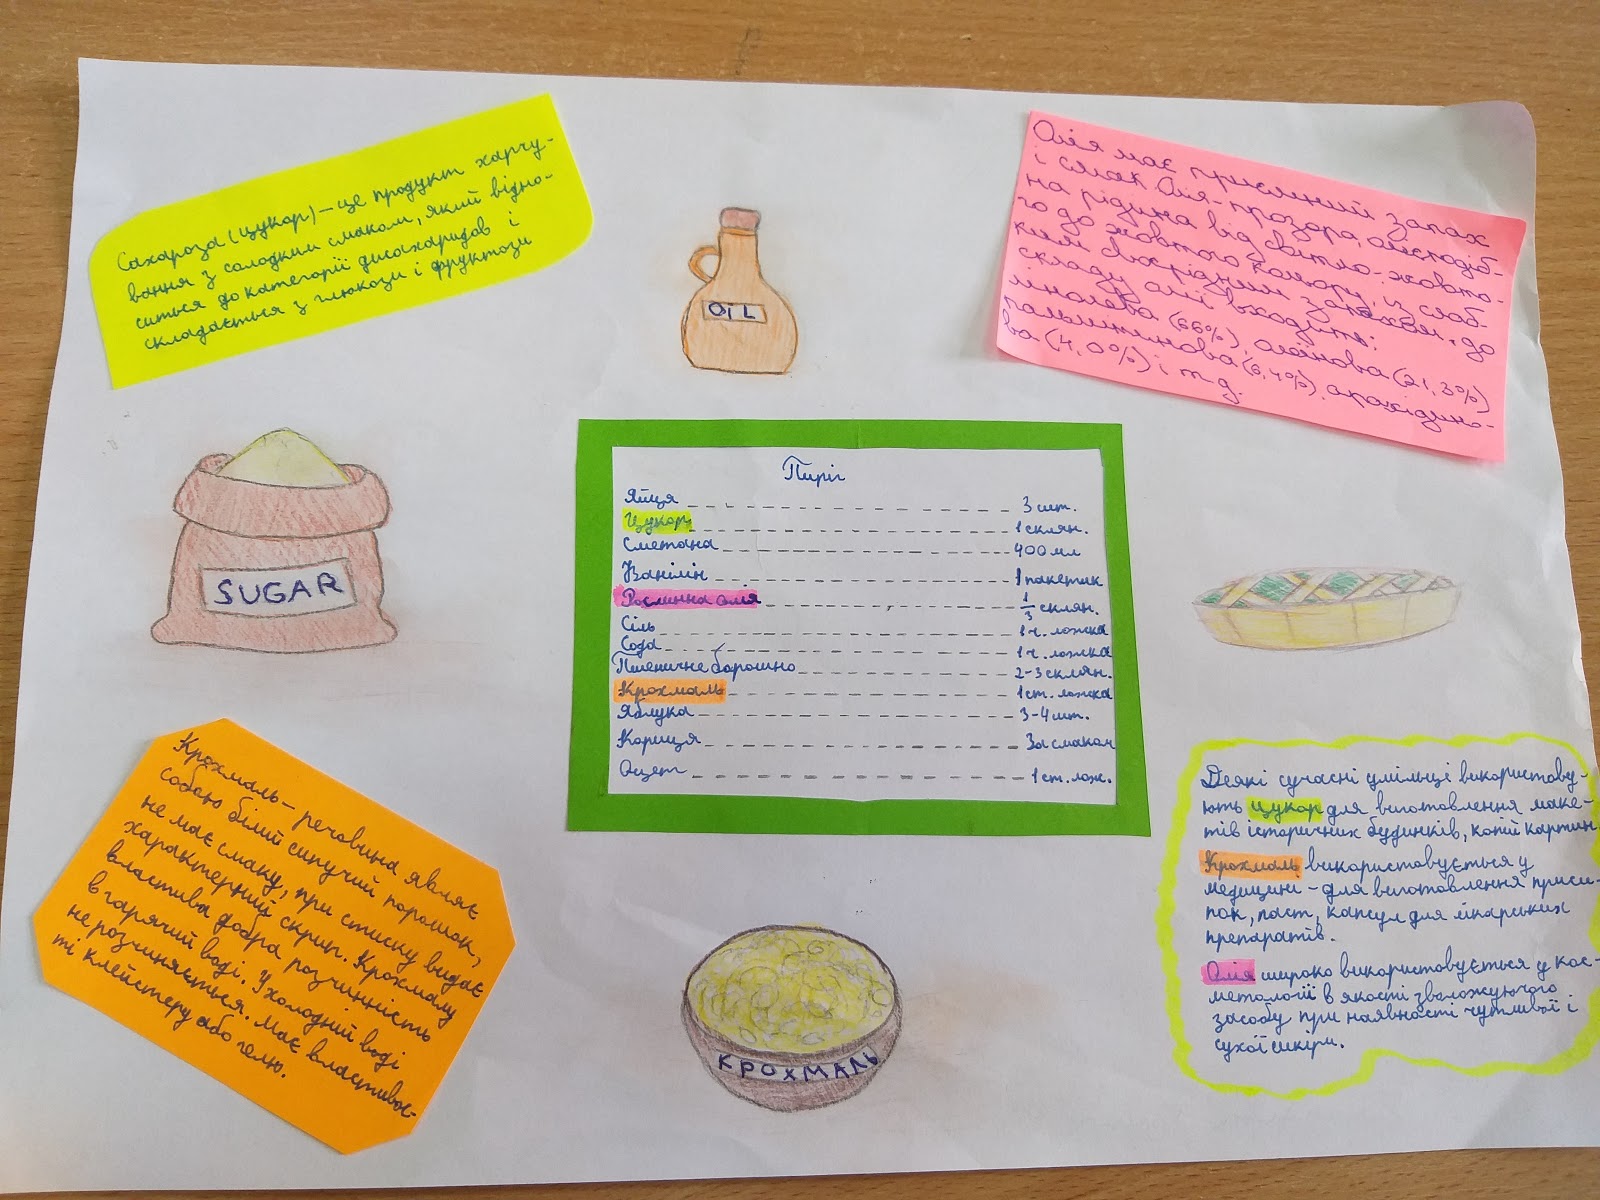 Сахароза (цукор) – це продукт харчу-
вання з солодким смаком, який відно-
ситься до категорії дисахаридів і
складається з глюкози і фруктози
OIL
Олія має приємний запах
і смак. Олія - прозора, олієподіб-
на рідина від світло-жовто-
го до жовтого кольору, із слаб-
ким своєрідним запахом, до
складу олії входить:
лінолева (66%), олеїнова (21,3%)
пальмітинова (6,4%), арахідино-
ва (4,0%) і т.д.
SUGAR
Пиріг
Яйця 3 шт.
Цукор 1 склян.
Сметана 400 мл
Ванілін 1 пакетик
Рослинна олія 1/3 склян.
Сіль 1 ч. ложка
Сода 1 ч. ложка
Пшеничне борошно 2-3 склян.
Крохмаль 1 ст. ложка
Яблука 3-4 шт.
Кориця За смаком
Оцет 1 ст. лож.
Крохмаль – речовина являє
собою білий сипучий порошок,
не має смаку, при стиску видає
характерний скрип. Крохмалу
властива добра розчинність
в гарячій воді. У холодній воді
не розчиняється. Має властивос-
ті клейстеру або гелю.
КРОХМАЛЬ
Деякі сучасні умільці використову-
ють цукор для виготовлення маке-
тів історичних будинків, копій картин
Крохмаль використовується у
медицині - для виготовлення приси-
пок, паст, капсул для лікарських
препаратів.
Олія широко використовується у кос-
метології в якості зволожуючого
засобу при наявності чутливої і
сухої шкіри.